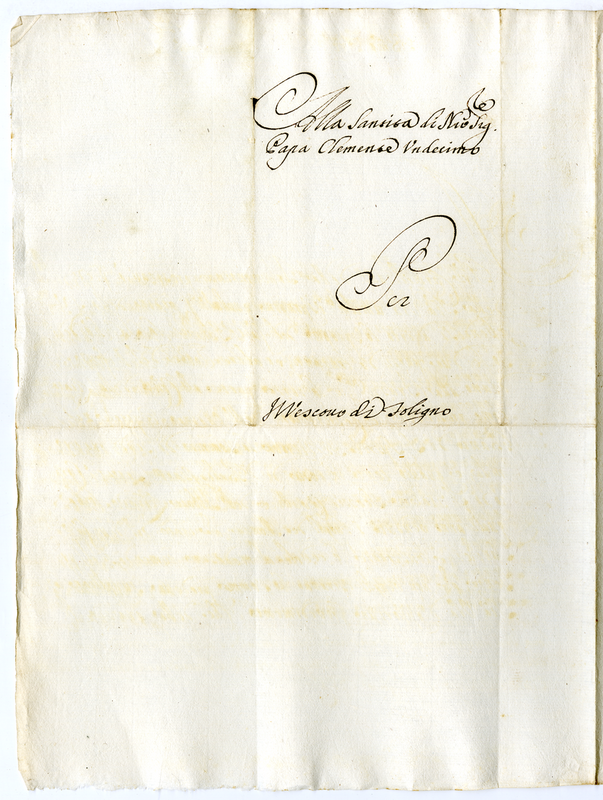 Alla Santità di Nro Sigre
Papa Clemente Undecimo
Per
Il Vescovo di Foligno